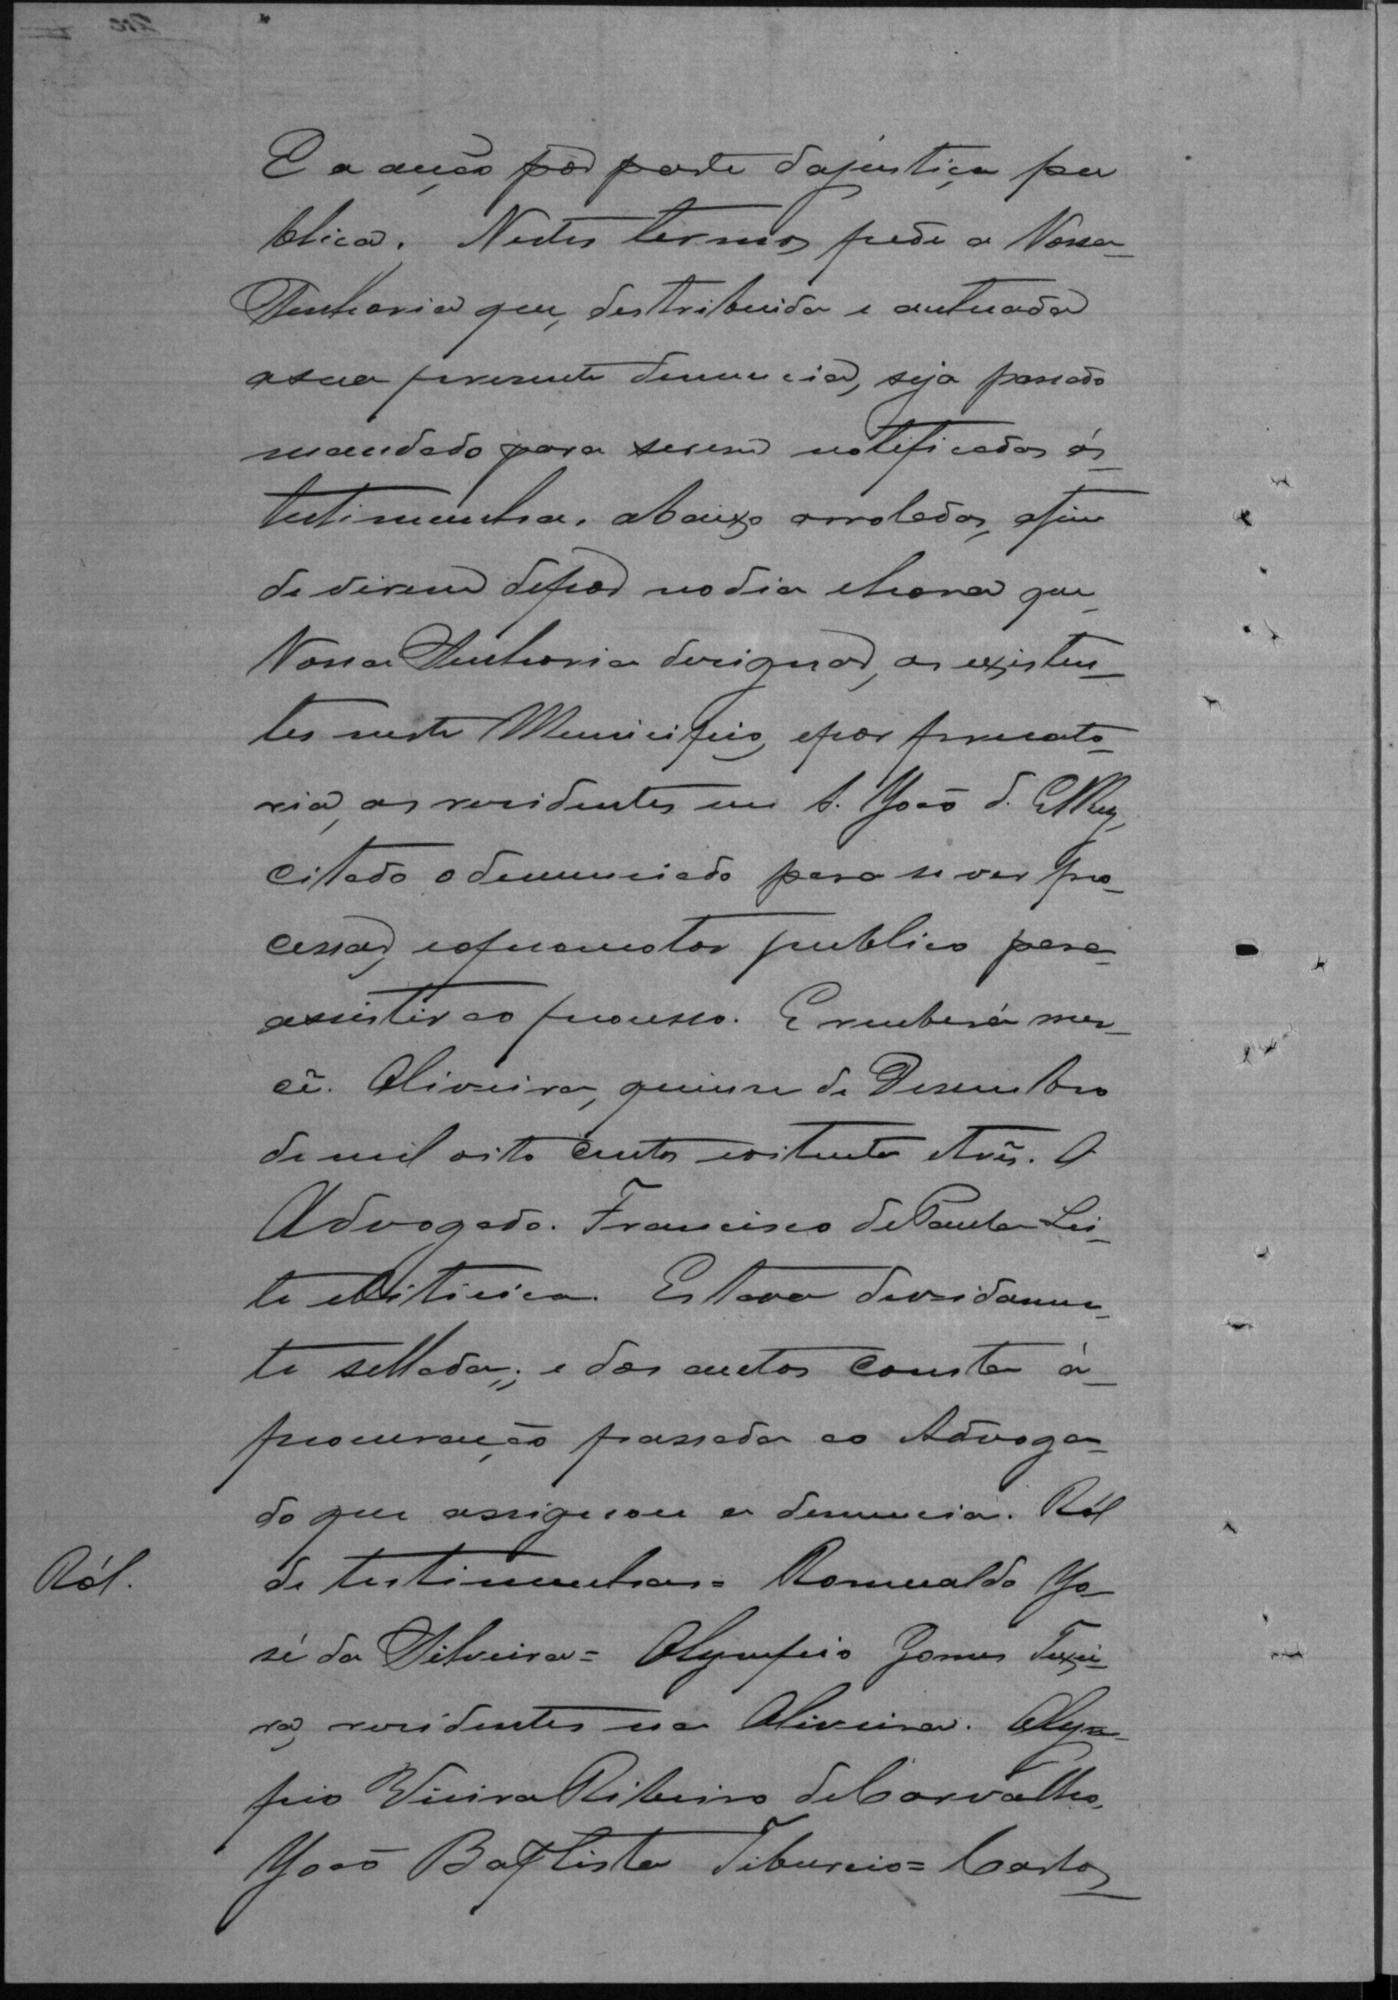 E a acção por parte dajustiça pu
blica. Nestes termos pede a Vossa
Senhoria que, destribuida e autuada
a sua presente denuncia, seja passado
mandado para serem notificadas ás
testimunhas abaixo arroladas, afim
de virem depor no dia ehora que
Vossa Senhoria designar, as existen-
tes neste Municipio, epor precato-
ria, as residentes em S. João d. El Rey,
citado o denunciado para se ver pro-
cessar, eopromotor publico para
assistir ao processo. E receberá mer-
cê. Oliveira, quinse de Desembro
de mil oito centos eoitenta etrês. O
Advogado. Francisco de Paula Lei-
te e Oiticica. Estava devidamen-
te sellada; e dos autos consta á
procuração passada ao Advoga-
do que assignou a denuncia. Ról
Ról.
de testimunhas = Romualdo Jo-
sé da Silveira = Olympio Gomes Teixei-
ra, residentes na Oliveira. Olym-
pio Vieira Ribeiro de Carvalho,
João Baptista Tiburcio = Carlos